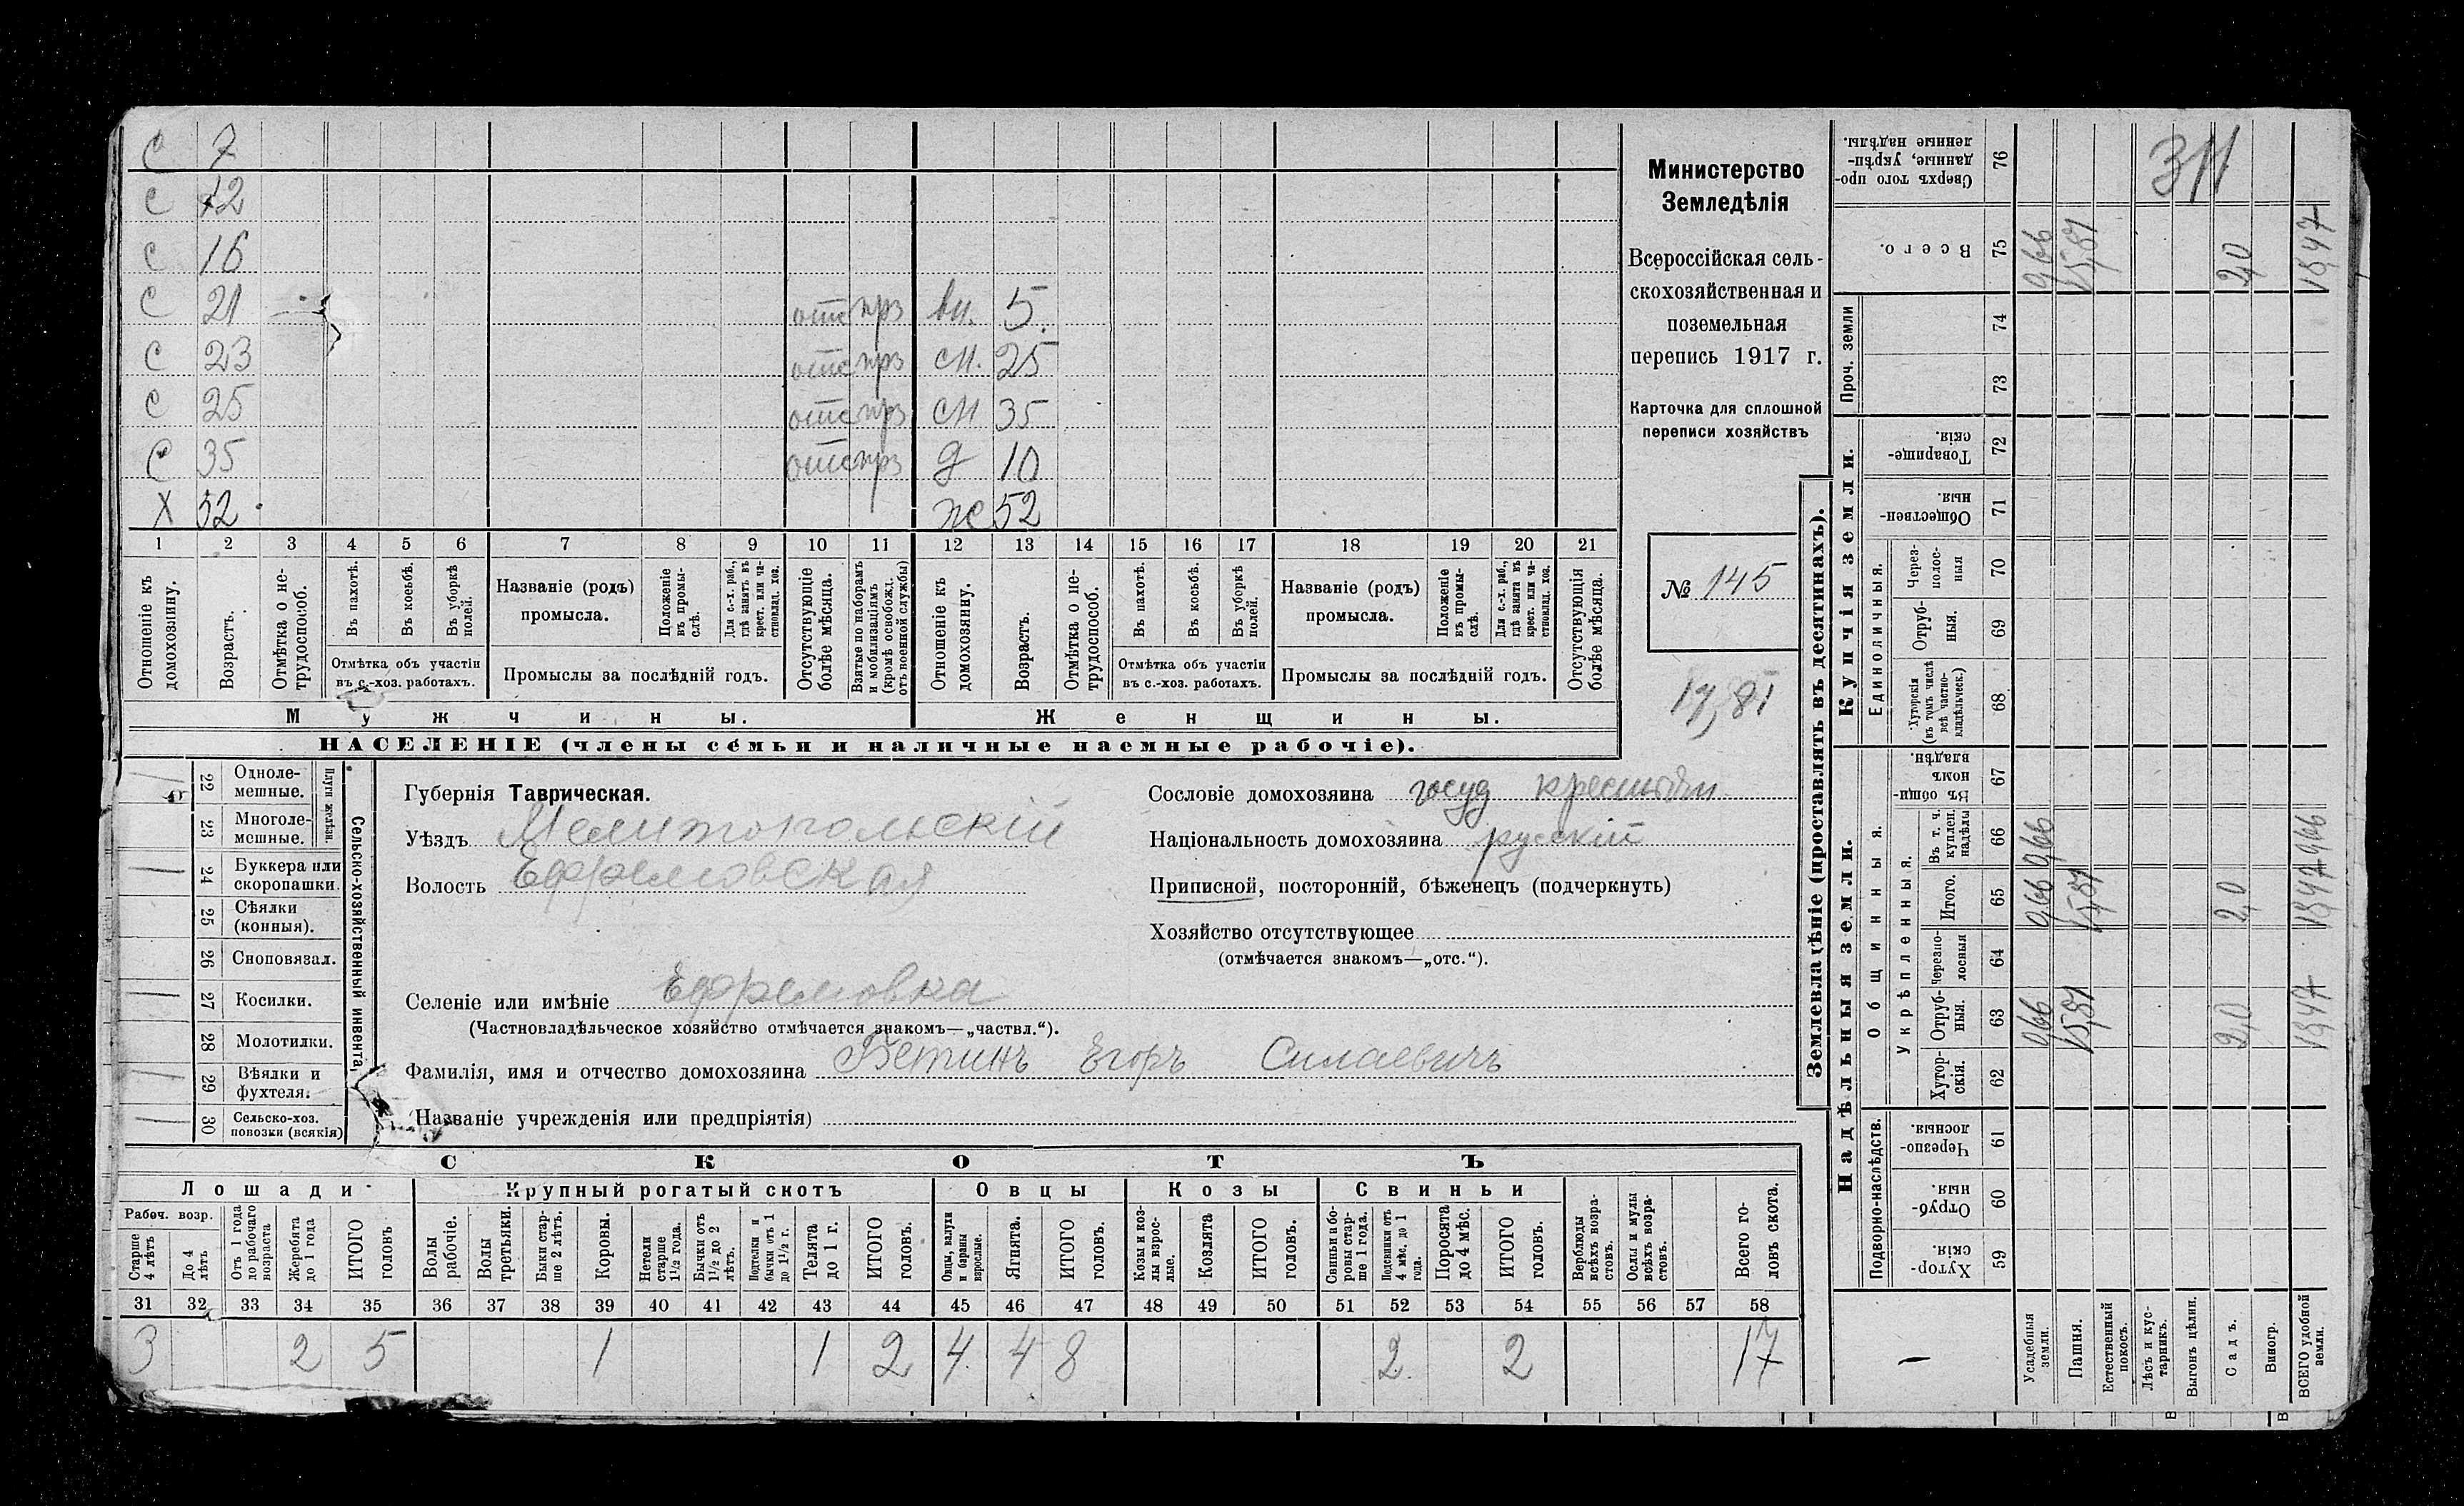 С 7
С 12
С 16
С 21 отс прз вн. 5.
С 23 отс прз сн. 25
С 25 отс прз сн 35
С 35 отс прз д 10
Х 52 ж 52
1 2 3 4 5 6 7 8 9 10 11 12 13 14 15 16 17 18 19 20 21
Отношеніе къ домохозяину.
Возрастъ.
Отмѣтка о не-трудоспособ.
Въ пахотѣ.
Въ косьбѣ.
Въ уборкѣ полей.
Отмѣтка объ участіи въ с.-хоз. работахъ.
Названіе (родъ) промысла.
Положеніе въ промы-слѣ.
Для с.-х. раб., гдѣ занятъ въ крест. или ча-стновлад. хоз.
Промыслы за послѣдній годъ.
Отсутствующіе болѣе мѣсяца.
Взятые по наборамъ и мобилизаціямъ (кромѣ освобожд. отъ военной службы)
Отношеніе къ домохозяину.
Возрастъ.
Отмѣтка о не-трудоспособ.
Въ пахотѣ.
Въ косьбѣ.
Въ уборкѣ полей.
Отмѣтка объ участіи въ с.-хоз. работахъ.
Названіе (родъ) промысла.
Положеніе въ промы-слѣ.
Для с.-х. раб., гдѣ занята въ крест. или ча-стновлад. хоз.
Промыслы за послѣдній годъ.
Отсутствующія болѣе мѣсяца.
Мужчины.
Женщины.
НАСЕЛЕНІЕ (члены семьи и наличные наемные рабочіе).
Министерство
Земледѣлія
Всероссійская сель-
скохозяйственная и
поземельная
перепись 1917 г.
Карточка для сплошной
переписи хозяйствъ
№ 145
17,81
22 Одноле-мешные.
23 Многоле-мешные.
Плуги желѣзн.
24 Буккера или скоропашки.
25 Сѣялки (конныя).
26 Сноповязал.
27 Косилки.
28 Молотилки.
29 Вѣялки и фухтеля.
30 Сельско-хоз. повозки (всякія)
Сельско-хозяйственный инвента
Губернія Таврическая.
Уѣздъ Мелитопольскій
Волость Ефремовская
Селеніе или имѣніе Ефремовка
(Частновладѣльческое хозяйство отмѣчается знакомъ—„частвл.“).
Фамилія, имя и отчество домохозяина Бетинъ Егоръ Силаевичъ
(Названіе учрежденія или предпріятія)
Сословіе домохозяина госуд крестьян
Національность домохозяина русскій
Приписной, посторонній, бѣженецъ (подчеркнуть)
Хозяйство отсутствующее
(отмѣчается знакомъ—„отс.“).
СКОТЪ
Лошади
Крупный рогатый скотъ
Овцы
Козы
Свиньи
Рабоч. возр.
Старше 4 лѣтъ
До 4 лѣтъ
Отъ 1 года до рабочаго возраста
Жеребята до 1 года
ИТОГО головъ
Волы рабочіе.
Волы третьяки.
Быки стар-ше 2 лѣтъ.
Коровы.
Нетели старше 1½ года.
Бычки отъ 1½ до 2 лѣтъ.
Подтелки и бычки отъ 1 до 1½ г.
Телята до 1 г.
ИТОГО головъ.
Овцы, валухи и бараны взрослые.
Ягнята.
ИТОГО головъ.
Козы и коз-лы взрос-лые.
Козлята
ИТОГО головъ.
Свиньи и бо-ровы стар-ше 1 года.
Подсвинки отъ 4 мѣс. до 1 года.
Поросята до 4 мѣс.
ИТОГО головъ.
Верблюды всѣхъ возра-стовъ.
Ослы и мулы всѣхъ возра-стовъ.
Всего го-ловъ скота.
31 32 33 34 35 36 37 38 39 40 41 42 43 44 45 46 47 48 49 50 51 52 53 54 55 56 57 58
3 2 5 1 1 2 4 4 8 2 2 17
Землевладѣніе (проставлять въ десятинахъ).
Надѣльныя земли.
Купчія земли.
Проч. земли
Подворно-наслѣдств.
Общинныя.
Укрѣпленныя.
Единоличныя.
59 Хутор-скія.
60 Отруб-ныя.
61 Черезпо-лосныя.
62 Хутор-скія.
63 Отруб-ныя. 0,66 15,81 2,0 18,47
64 Черезпо-лосныя
65 Итого. 0,66 15,81 2,0 18,47
66 Въ т. ч. куплен. надѣлы 0,66
67 Въ общи-номъ владѣн.
68 Хуторскія (въ томъ числѣ всѣ частно-владѣльческ.)
69 Отруб-ныя.
70 Через-полос-ныя
71 Обществен-ныя.
72 Товарище-скія.
73
74
75 Всего. 0,66 15,81 2,0 18,47
76 Сверхъ того про-данные, укрѣп-ленные надѣлы.
311
Усадебныя земли.
Пашня.
Естественный покосъ.
Лѣсъ и кус-тарникъ.
Выгонъ цѣлин.
Садъ.
Виногр.
ВСЕГО удобной земли.